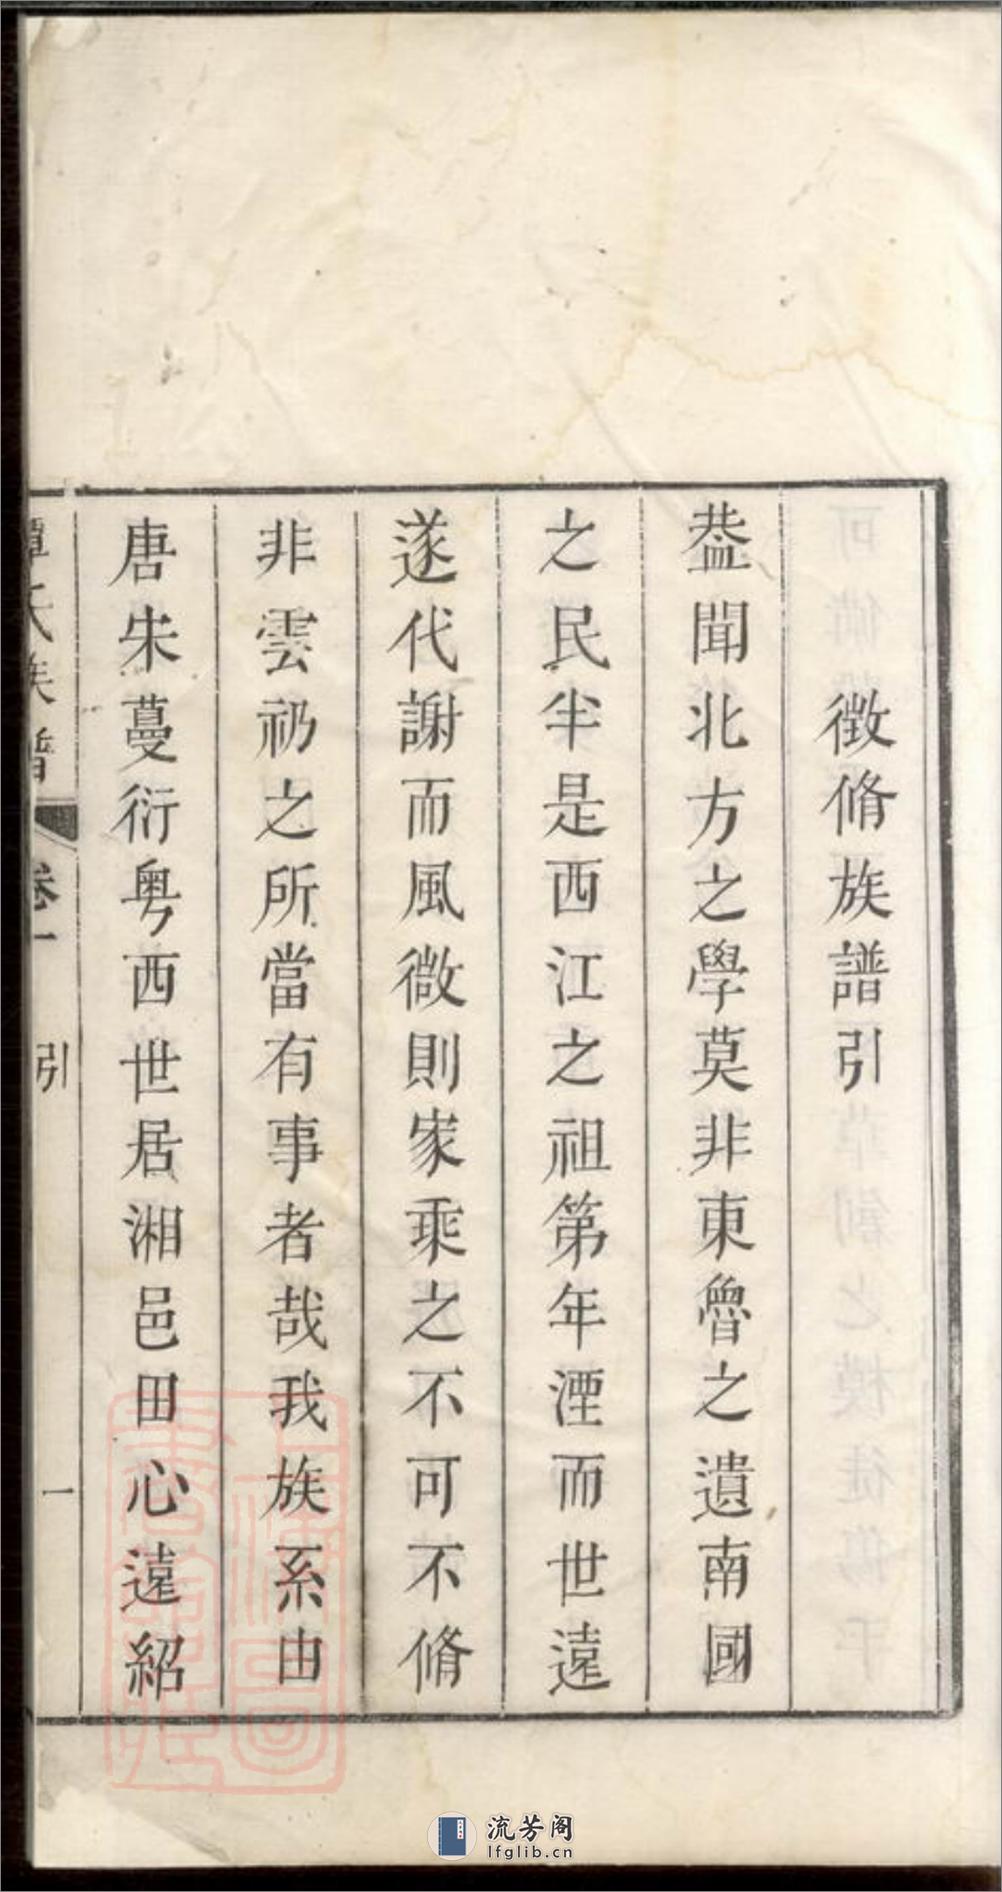 徵脩族譜引
葢聞北方之學莫非東魯之遺南國
之民半是西江之祖第年湮而世遠
遂代謝而風微則家乘之不可不脩
非雲礽之所當有事者哉我族系由
唐朱蔓衍粤西世居湘邑田心遠紹
譚氏族譜 卷一 引 一
上海圖書館藏
流芳阁
lfglib.cn